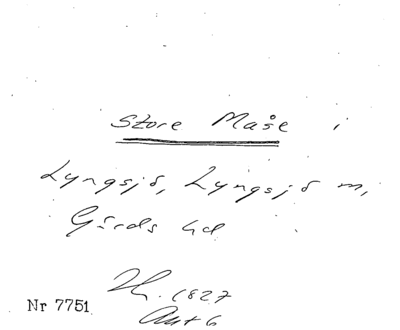 Store Maße i
Lyngsjö, Lyngsjö m,
Gärds hd
1827
Nr 7751
Akt 6